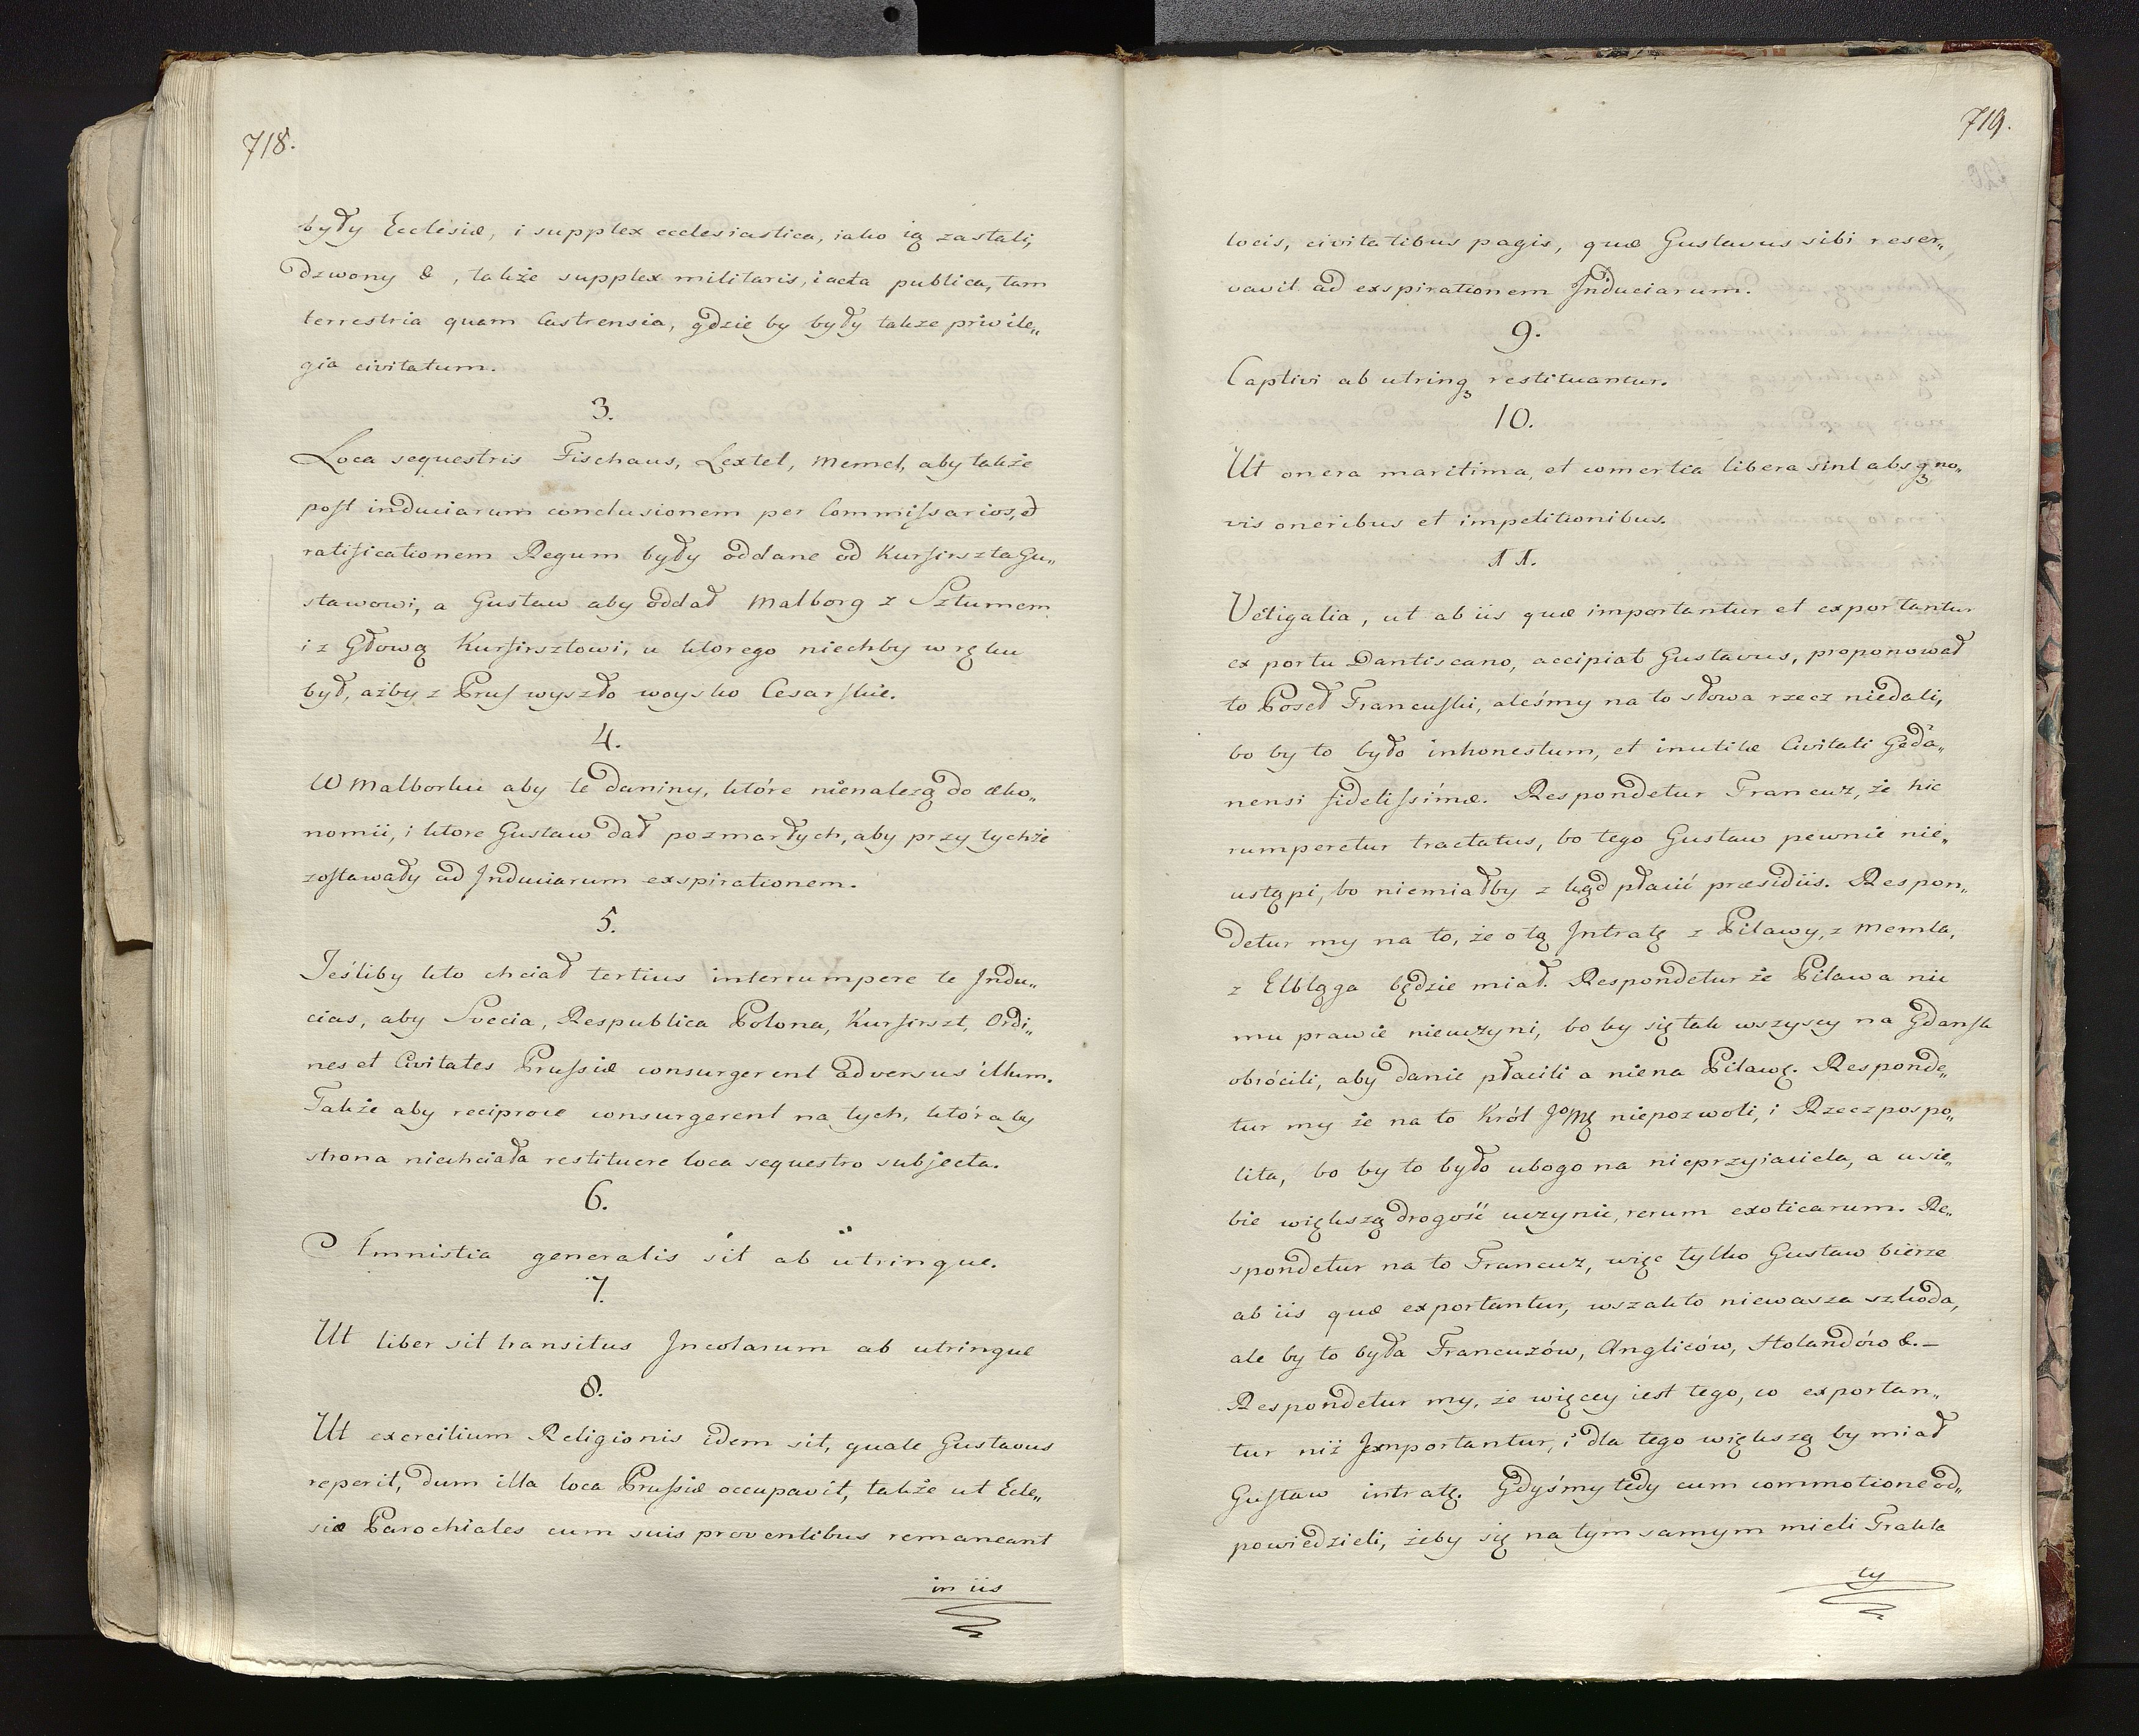 718.
były Ecclesiæ, i supplex ecclesiastica, iako ią zastali,
dzwony &, także supplex militaris, i acta publica, tam
terrestria quam Castrensia, gdzie by były także privile„
gia civitatum.
3.
Loca sequestris Fischaus, Lextel, Memel, aby także
post induciarum conclusionem per Commissarios, et
ratificationem Regum były oddane od Kurfirszta Gu„
stawowi, a Gustaw aby oddał Malborg z Sztumem
i z Głową Kurfirsztowi, u ktorego niechby w ręku
był, ażby z Prus wyszło woysko Cesarskie.
4.
W Malborku aby te daniny, które nienależą do œko„
nomii, i ktore Gustaw dał pozmarłych, aby przy tychże
zostawały ad Induciarum exspirationem.
5.
Jeśliby kto chciał tertius interrumpere te Indu„
cias, aby Svecia, Respublica Polona, Kurfirszt, Ordi„
nes et Civitates Prussiæ consurgerent adversus illum.
Także aby reciproce consurgerent na tych, któraby
strona niechciała restituere loca sequestro subjecta.
6.
Amnistia generalis sit ab utrinque.
7.
Ut liber sit transitus Incolarum ab utrinque
8.
Ut exercitium Religionis idem sit, quale Gustavus
reperit, dum illa loca Prussiæ occupavit, także ut Ecle„
siæ Parochiales cum suis proventibus remaneant
in iis
719.
locis, civitatibus pagis, quæ Gustavus sibi reser„
vavit ad exspirationem Induciarum.
9.
Captivi ab utrinqꝫ restituantur.
10.
Ut onera maritima, et comertia libera sint absqꝫ no„
vis oneribus et impetitionibus.
11.
Vectigalia, ut ab iis quæ importantur et exportantur
ex portu Dantiscano, accipiat Gustavus, proponował
to Poseł Francuski, aleśmy na to słowa rzecz niedali,
bo by to było inhonestum, et inutile Civitati Geda„
nensi fidelissimæ. Respondetur Francuz, że hic
rumperetur tractatus, bo tego Gustaw pewnie nie„
ustąpi, bo niemiałby z kąd płacić præsidiis. Respon„
detur my na to, że o tą Intratę z Pilawy, z Memla,
z Elbląga będzie miał. Respondetur że Pilawa nic
mu prawie nieuczyni, bo by się tak wszyscy na Gdansk
obrócili, aby danie płacili a niena Pilawę. Responde„
tur my że na to Król JoMę niepozwoli, i Rzeczpospo„
lita, bo by to było ubogo na nieprzyiaciela, a u sie„
bie większą drogość uczynić, rerum exoticarum. Re„
spondetur na to Francuz, więc tylko Gustaw bierze
ab iis quæ exportantur, wszak to niewasza szkoda,
ale by to była Francuzów, Anglików, Holandów &.–
Respondetur my, że więcey iest tego, co exportan„
tur niż Importantur, i dla tego większą by miał
Gustaw intratę. Gdyśmy tedy cum commotione od„
powiedzieli, żeby się na tym samym mieli Trakta
ty